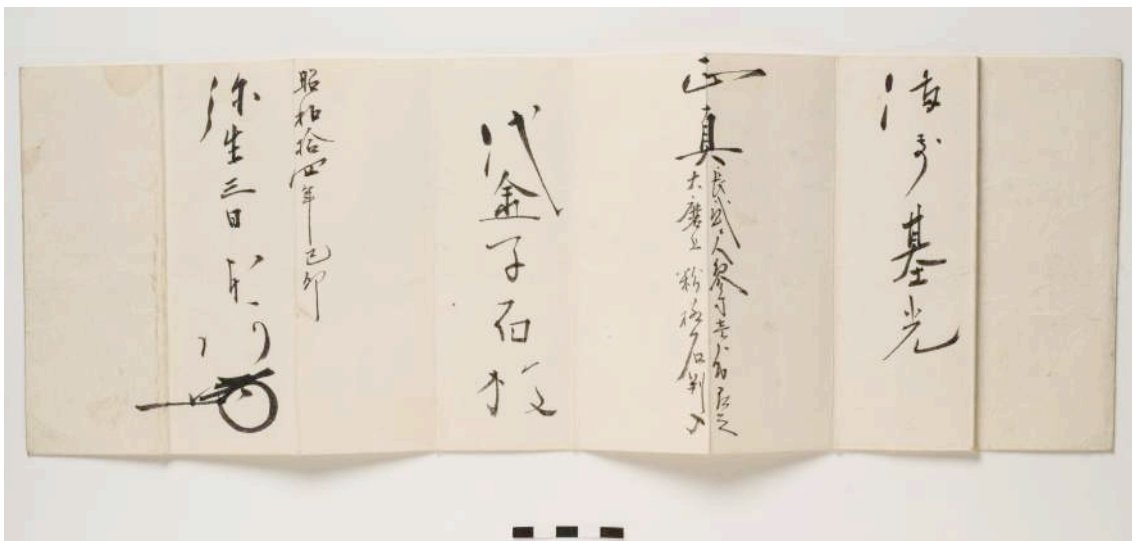 備前基光
正真
長サ弐尺参寸壱分有之
大磨上
代金子百枚
昭和拾四年己卯
弥生三日 本阿